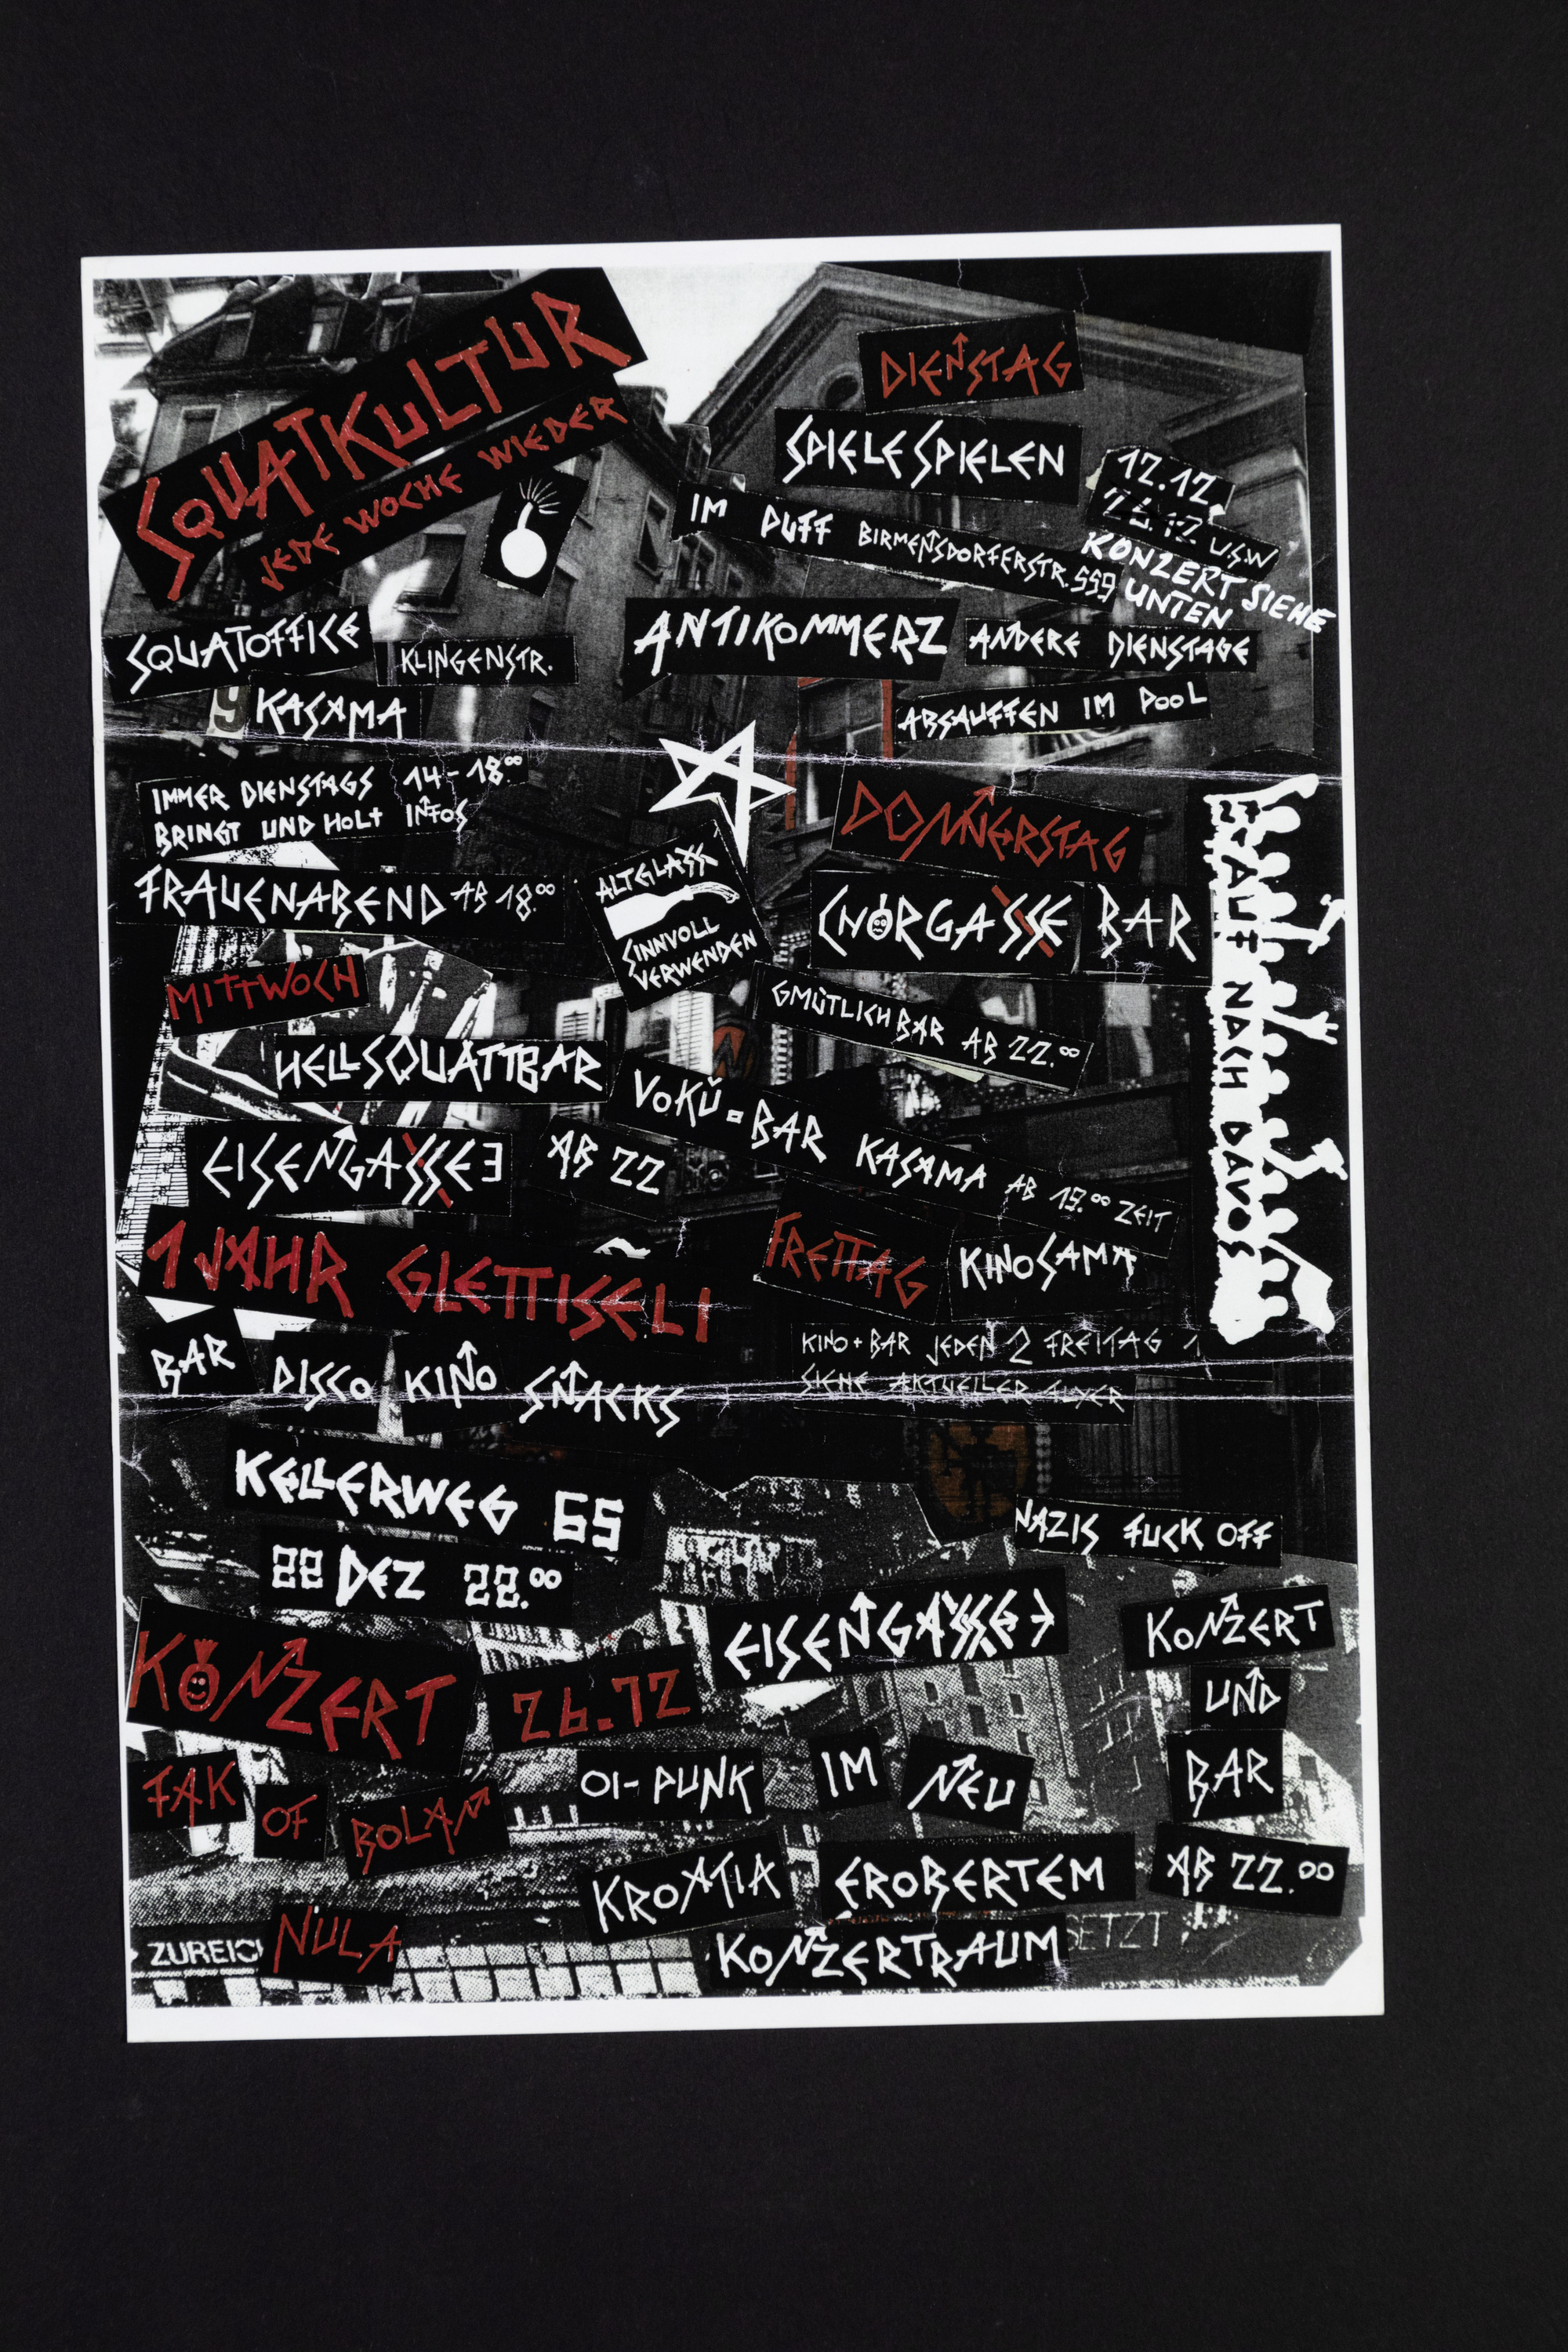 SQUATKULTUR
JEDE WOCHE WIEDER
SQUATOFFICE
KLINGENSTR.
9 KASAMA
IMMER DIENSTAGS 14-18.00
BRINGT UND HOLT INFOS
FRAUENABEND AB 18.00
DIENSTAG
SPIELE SPIELEN
12.12
26.12 USW
KONZERT SIEHE
UNTEN
IM PUFF BIRMENSDORFERSTR. 559
ANTIKOMMERZ
ANDERE DIENSTAGE
ABSAUFFEN IM POOL
ALTGLASS
SINNVOLL
VERWENDEN
MITTWOCH
HELLSQUATTBAR
EISENGASSE 3
AB 22
DONNERSTAG
CNÖRGASSE BAR
GMÜTLICH BAR AB 22.00
VOKÜ=BAR KASAMA AB 19.00 ZEIT
AUF NACH DAVOS
1 JAHR GLETTISELI
BAR DISCO KINO SNACKS
KELLERWEG 65
22 DEZ 22.00
FREITAG
KINOSAMA
KINO + BAR JEDEN 2 FREITAG
SIEHE AKTUELLER FLYER
NAZIS FUCK OFF
KONZERT 26.12
EISENGASSE 3
FAK OF BOLAN
NULA
OI-PUNK
KROATIA
IM NEU
EROBERTEM
KONZERTRAUM
KONZERT
UND
BAR
AB 22.00
ZUREICH
SETZT